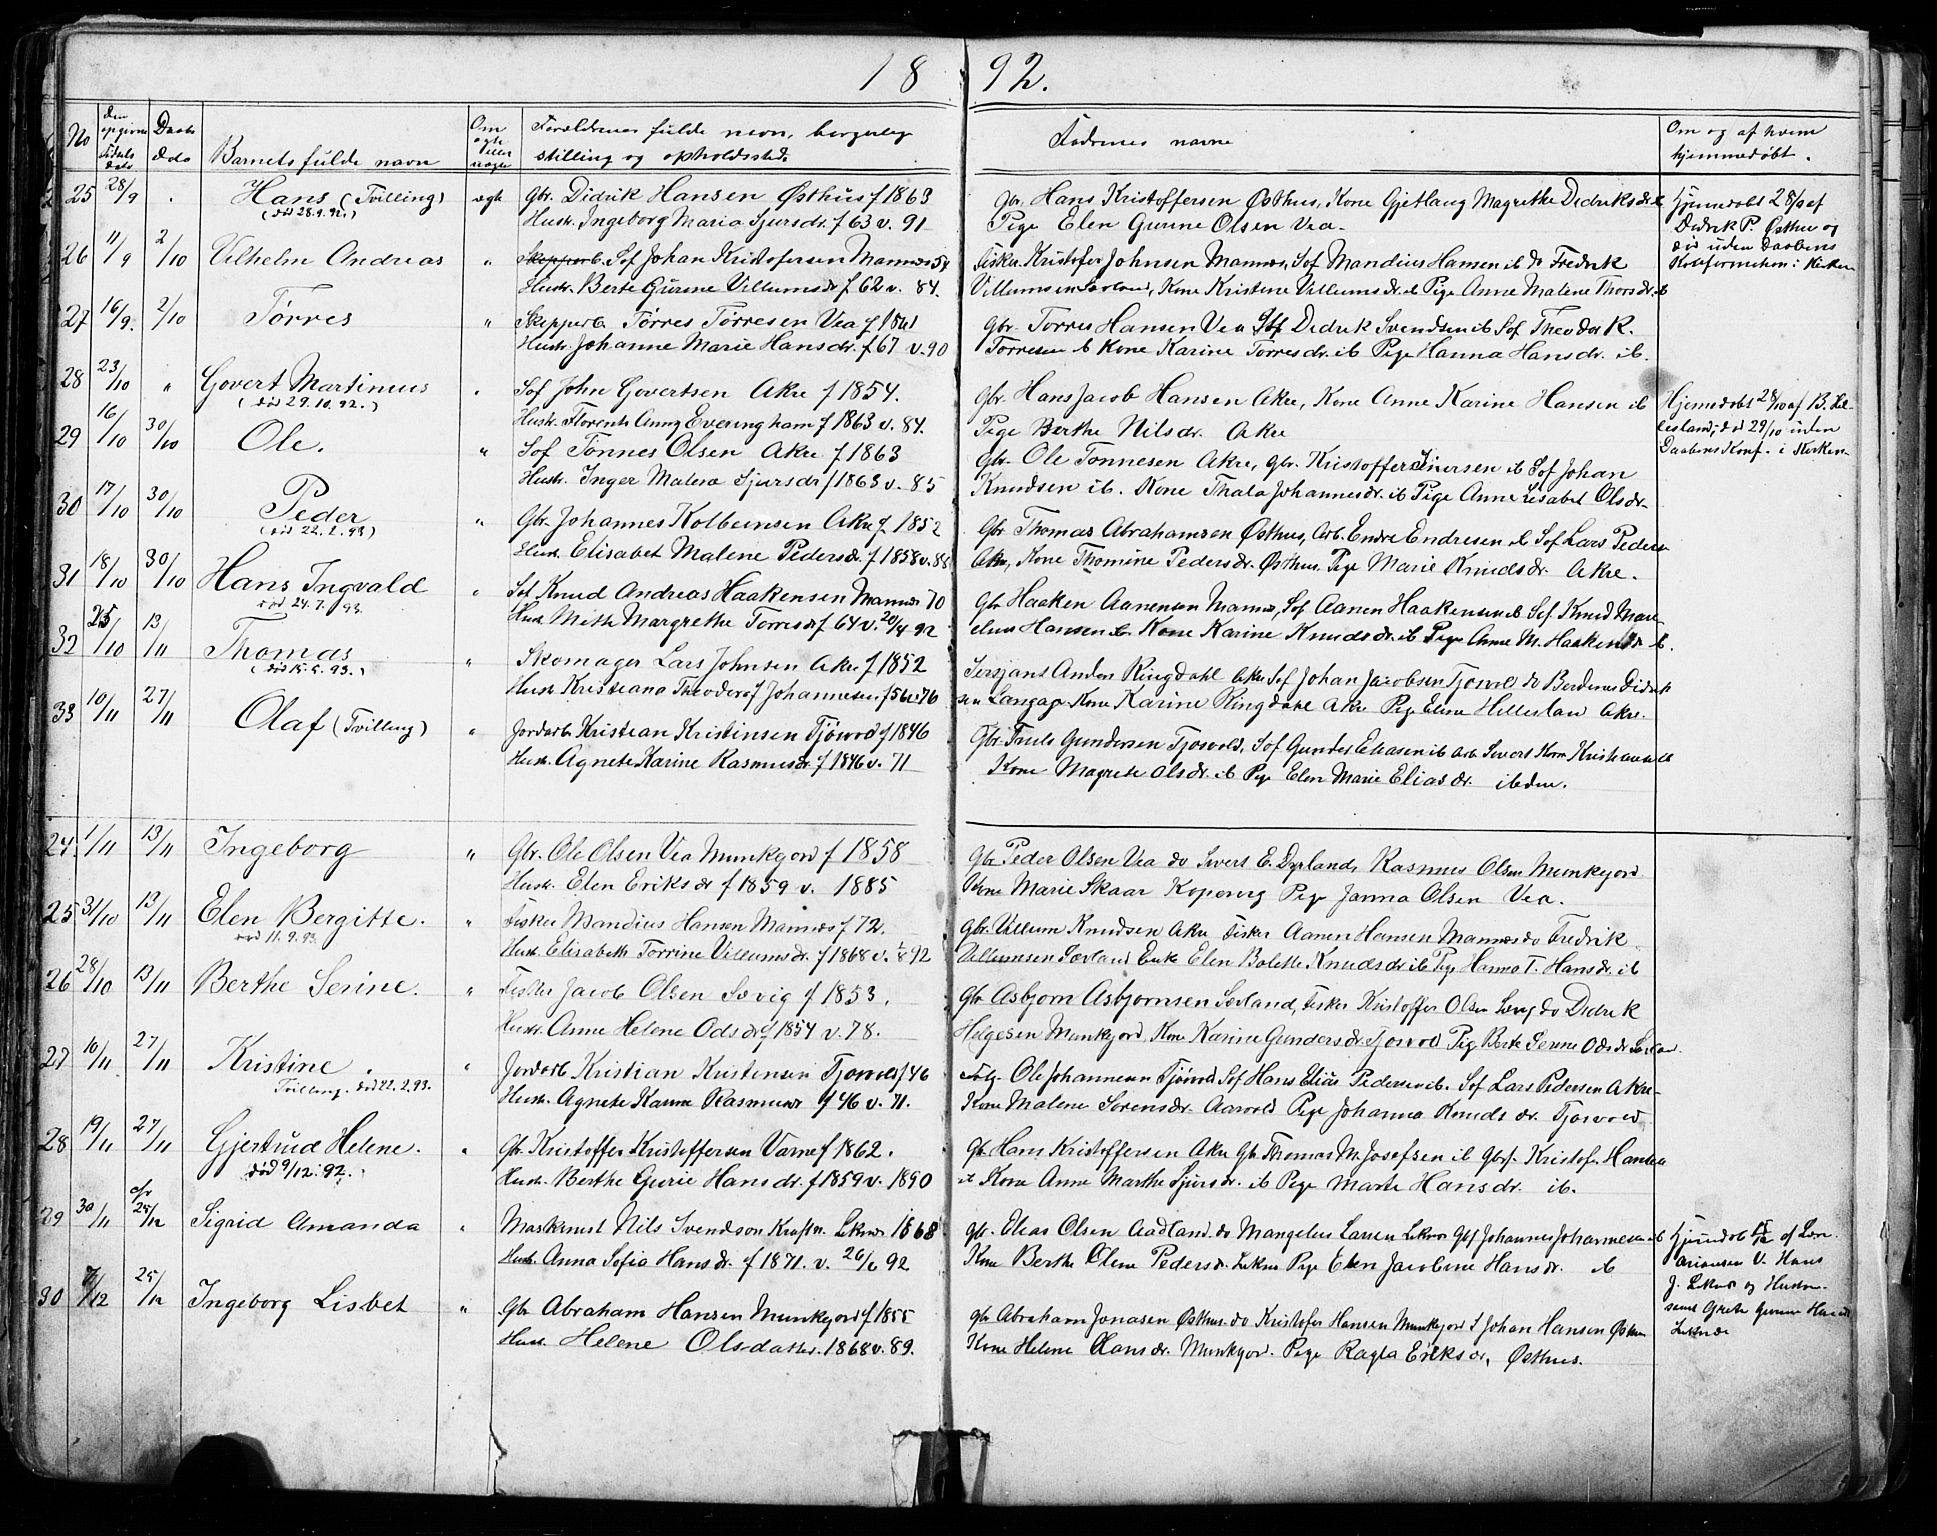 18 92.
No | den opgivne fødsels dato | Daabs Dato | Barnets fulde navn | Om ægte eller uægte | Forældrenes fulde navn, borgerlig stilling og opholdssted. | Fadrenes navne | Om og af hvem hjemmedøbt.
25 28/9 . Hans (Tvilling) ægte Gbr. Didrik Hansen Østhus f 1863 Gbr. Hans Kristoffersen Østhus, Kone Gjetlaug Magrethe Didriksdr. ib Hjemmedøbt 28/9 af
(død 28.9.92.) Hustr. Ingeborg Maria Sjursdr. f 63 v. 91 Pige Elen Gurine Olsen Vea. Didrik P. Østhus og
26 11/9 2/10 Vilhelm Andreas " Skipperb. Søf Johan Kristofersen Mannes 54 Fisker Kristofer Johnsen Mannes, Søf Mandius Hansen ib do Fredrik død uden Daabens
Hustr. Berte Gurine Villumsdr f 62 v. 84. Villumsen Sævland, Kone Kristine Villumsdr. ib Pige Anne Malene Thorsdr. ib Konfirmation i Kirken
27 16/9. 2/10 Tørres " Skipperb. Tørres Tørresen Vea f 1861 Gbr. Torres Hansen Vea Søf Didrik Svendsen ib Søf Theodor R.
Hustr. Johanne Marie Hansdr. f 67 v. 90 Torresen ib Kone Karine Torresdr. ib Pige Hanna Hansdr. ib.
28 23/10 " Govert Martinius " Søf John Govertsen Akre f 1854. Gbr. Hans Jacob Hansen Akre, Kone Anne Karine Hansen ib Hjemmedøbt 28/10 af B. Hel-
(død 29.10.92.) Hustr. Florents Anny Everingham f 1863 v. 84. Pige Berthe Nilsdr. Akre lesland; død 29/10 uden
29 16/10 30/10 Ole. " Søf Tønnes Olsen Akre f 1863 Gbr. Ole Tonnesen Akre, Gbr. Kristoffer Siversen ib Søf Johan Daabens Konf. i Kirken
Hustr. Inger Malena Sjursdr f 1863 v. 85 Knudsen ib. Kone Thala Johannesdr. ib Pige Anne Lisabet Olsdr.
30 17/10 30/10 Peder " Gbr. Johannes Kolbeinsen Akre f 1852 Gbr. Thomas Abrahamsen Østhus, Arb. Endre Endresen ib Søf Lars Pedersen
(død 22.2.93) Hustr. Elisabet Malene Pedersdr. f 1858 v. 88 Akre, Kone Thomine Pedersdr. Østhus, Pige Marie Knudsdr. Akre.
31 18/10 30/10 Hans Ingvald " Søf Knud Andreas Haakensen Mannes 70 Gbr Haaken Aanensen Mannes, Søf Aanen Haakensen ib Søf. Knud Mari-
død 24.7.93. Hustr. Mette Margrethe Torresdr f 64 v. 20/4 92 elius Hansen ib Kone Karine Knudsdr. ib Pige Anne M. Haakensdr ib.
32 25/10 13/11 Thomas " Skomager Lars Johnsen Akre f 1852 Sersjant Anders Ringdahl Akre Søf Johan Jacobsen Tjosvol do Berdenes Didrik-
(død 15.5.93.) Hustr. Kristiana Theodora Johannesen f 56 v. 76 sen Langag. Kone Karine Ringdahl Akre Pige Elene Hilleslan Akre.
33 10/11 27/11 Olaf (Tvilling) " Jordarb Kristian Kristinsen Tjösvold f 1846 Gbr. Truls Gundersen Tjosvold, Søf Gunder Eliasen ib Arb. Sivert Korn Kristiansen ib
Hustr. Agnete Karine Rasmusdr. f 1846 v. 71 Kone Magrete Olsdr. ib Pige Elen Marie Eliasdr. ibden.
24. 1/11 13/11 Ingeborg " Gbr. Ole Olsen Vea Munkejord f 1858 Gbr Peder Olsen Vea do Sivert E. Dyrland, Rasmus Olsen Munkejord
Hustr. Elen Eriksdr f 1859 v. 1885 Kone Marie Skaar Kopervig Pige Janna Olsen Vea.
25 31/10 13/11 Elen Bergitte. " Fisker Mandius Hansen Mannes f 72. Gbr. Villum Knudsen Akre Fisker Aanen Hansen Mannes do Fredrik
død 11.9.93. Hustr. Elisabeth Torrine Villumsdr. f 1868 v. 92 Villumsen Sævland Enke Elen Bolette Knudsdr ib Pige Hanna T. Hansdr. ib
26 28/10 13/11 Berthe Serine. " Fisker Jacob Olsen Sevig f 1853. Gbr Asbjørn Asbjørnsen Sævland, Fisker Kristoffer Olsen Sevig do Didrik
Hustr. Anne Helene Odsdr f 1854 v. 78. Helgesen Munkejord, Kone Karine Gundersdr. Tjosvold Pige Berte Serine Odsdr Sævland.
27 10/11 27/11 Kristine. " Jordarb Kristian Kristensen Tjosvold f 46 Ole Johannesen Tjösvold Søf Hans Elias Pedersen ib. Søf Lars Pedersen Akre
Tvilling. død 22.2.93. Hustr. Agnete Karine Rasmusdr f 46 v. 71. Kone Malene Sørensdr. Aasvold Pige Johanna Knudsdr. Tjosvold
28 19/11 27/11 Gjertrud Helene. " Gbr. Kristoffer Kristoffersen Varne f 1862. Gbr Hans Kristoffersen Akre Gbr Thomas M. Josefsen ib Gbrf. Kristofer Hansen
død 9/12.92. Hustr. Berthe Gurie Hansdr. f 1859 v. 1890 ib Kone Anne Marthe Sjursdr. ib Pige Marte Hansdr. ib.
29 30/11 25/12 Sigrid Amanda " Maskinist Nils Svendson Liknes 1868 Gbr. Elias Olsen Aadland do Mangelus Larsen Liknes Gbf Johannes Johannesen ib Hjemdøbt af
Hustr. Anna Sofia Hansdr. f 1871. v. 26/6 92 Kone Berthe Oline Pedersdr. Liknes Pige Elen Jacobine Hansdr. ib V. Hans
30 7/12 25/12 Ingeborg Lisbet " Gbr Abraham Hansen Munkejord f 1855 Gbr Abraham Jonasen Østhus do Kristofer Hansen Munkejord S Johan Hansen Østhus J. Liknes og Hustru
Hustr. Helene Olsdatter. 1868 v. 89. Kone Helene Hansdr. Munkejord. Pige Ragla Eriksdr, Østhus. samt Grete Gurine